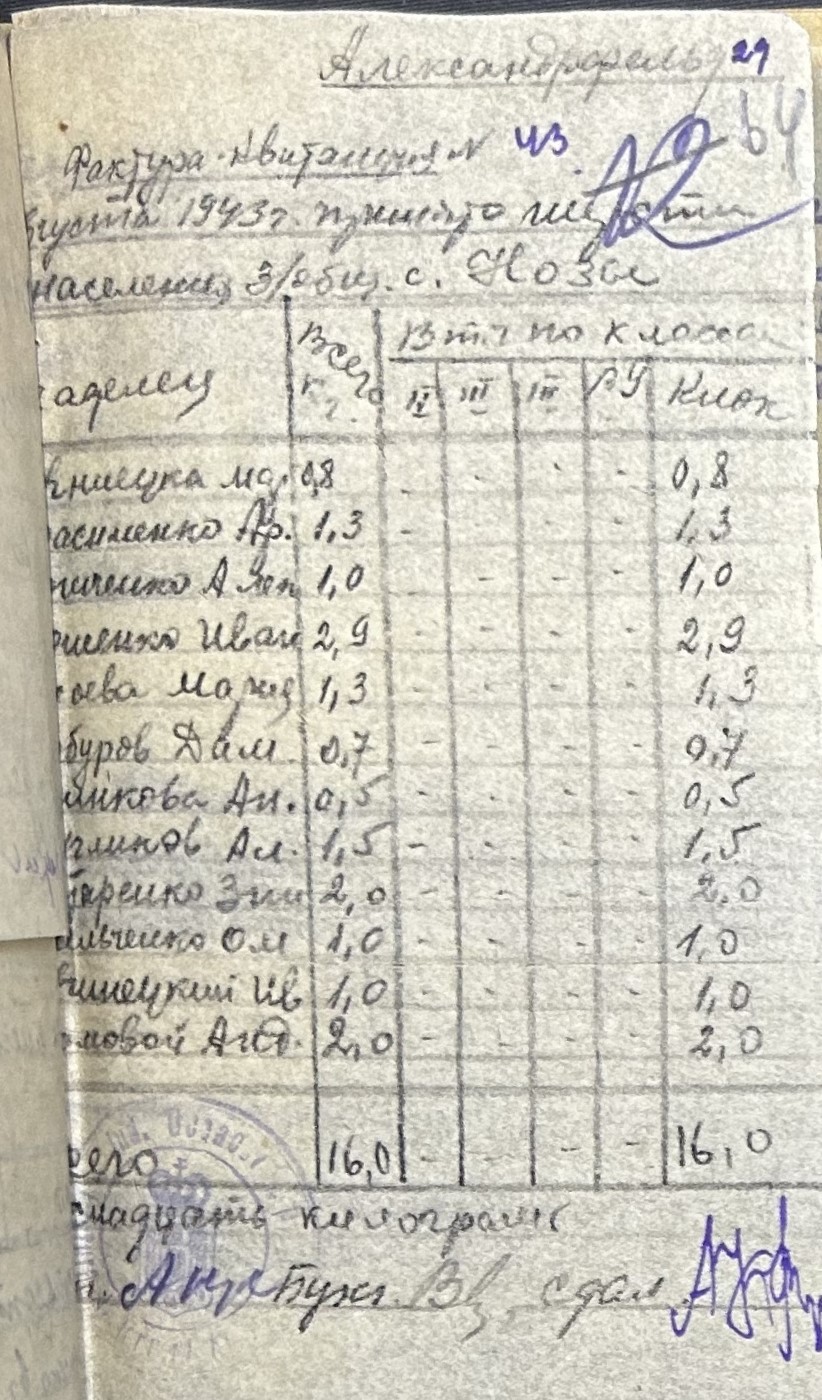 Александрфельд 29
64
Фактура-квитанция N 43
вгуста 1943г. принято шерсти
населения З/общ. с. Нозы
аделец Всего кг. В т.ч. по классам
IV III III РУ Клок
вницка Мар. 0,8 - - - - 0,8
расименко Гр. 1,3 - - - - 1,3
ниченко Алек 1,0 - - - - 1,0
шенко Иван 2,9 - - - - 2,9
оева Мария 1,3 - - - - 1,3
буров Дам 0,7 - - - - 0,7
никова Ан. 0,5 - - - - 0,5
гликов Ал. 1,5 - - - - 1,5
таренко Зин 2,0 - - - - 2,0
ильченко Ом 1,0 - - - - 1,0
виницкий Ив 1,0 - - - - 1,0
мовой Анд. 2,0 - - - - 2,0
сего 16,0 - - - - 16,0
снадцать килограмм
Бухг. сдал